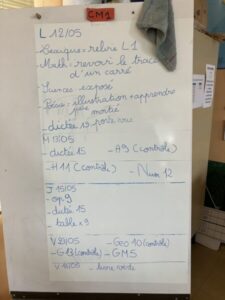 CM1
L 12/05
relire L1
Math = revoir le tracé
d'un carré
Sciences exposé
Poésie = illustration + apprendre
moitié
- dictée 15
M 13/05
- dictée 15 - A9 (contrôle)
- H11 (contrôle) - Num 12
J 15/05
- op. 9
- dictée 15
- table x 9
V 23/05 - Géo 10 (contrôle)
- G13 (contrôle) - GM5
V 16/05 - livre verte